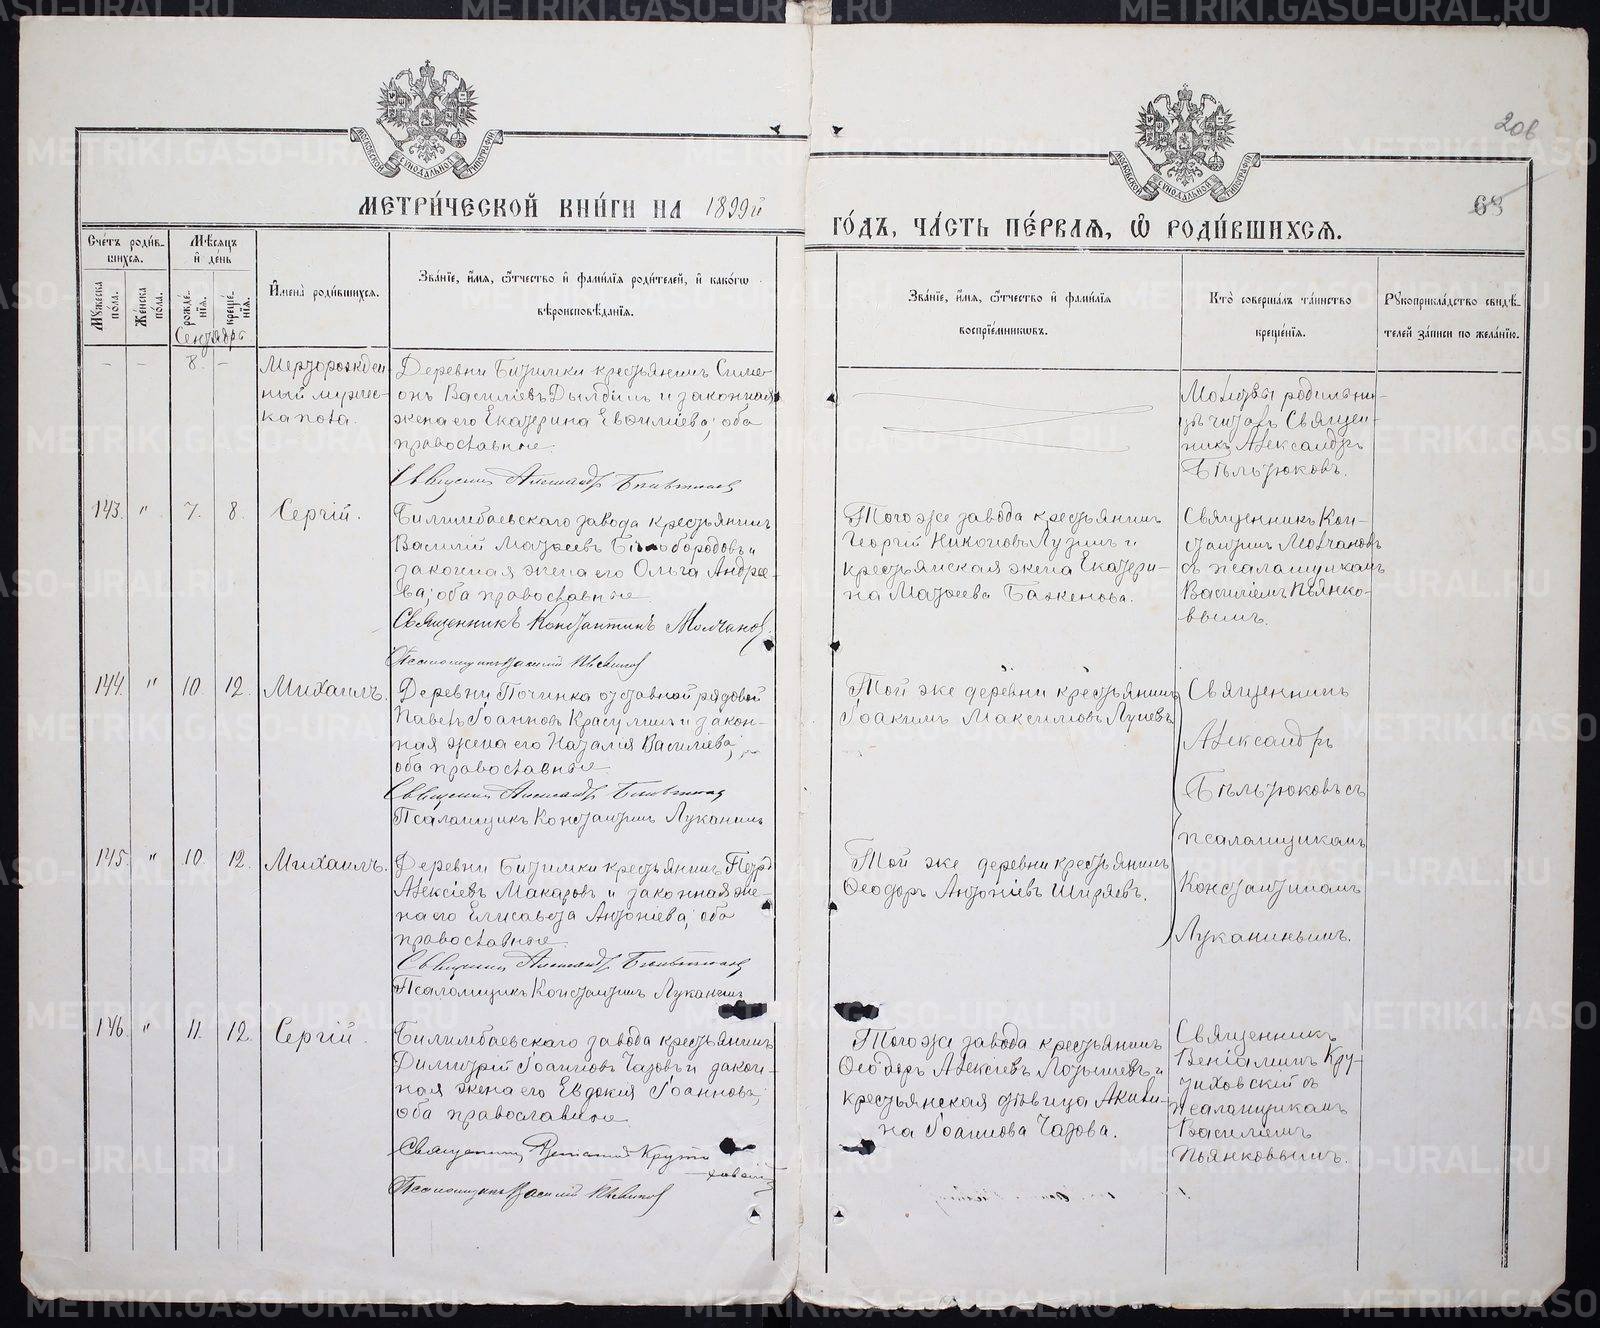 МЕТРИЧЕСКОЙ КНИГИ НА 1899й
ГОДЪ, ЧАСТЬ ПЕРВАЯ, Ѿ РОДИВШИХСЯ.
206
63
Счетъ родившихся.
Мужеска пола.
Женска пола.
Мѣсяцъ и день
рожденія.
крещенія.
Имена родившихся.
Званіе, имя, ѿтчество и фамилія родителей, и какогѡ
вѣроисповѣданія.
Званіе, имя, ѿтчество и фамилія
воспріемникѡвъ.
Кто совершалъ таинство
крещенія.
Рукоприкладство свидѣтелей записи по желанію.
Сентябрь
– – 8. –
Мерторожден
ный мужес-
ка пола.
Деревни Битимки крестьянинъ Симе-
онъ Василіевъ Дылдинъ и законная
жена его Екатерина Евфиміева; оба
православные.
Священникъ Александръ
Молитвы родильни-
цѣ читалъ Священ-
никъ Александръ
Бѣльтюковъ.
143. " 7. 8. Сергій.
Билимбаевскаго завода крестьянинъ
Василій Матѳеевъ Бѣлобородовъ и
законная жена его Ольга Андре-
ева; оба православные
Священникъ Константинъ Молчановъ.
Псаломщикъ Василій Пьянковъ
Того же завода крестьянинъ
Георгій Никоновъ Лузинъ и
крестьянская жена Екатери-
на Матѳеева Баженова.
Священникъ Кон-
стантинъ Молчановъ
съ псаломщикомъ
Василіемъ Пьянко-
вымъ.
144. " 10. 12. Михаилъ.
Деревни Починка отставной рядовой
Павелъ Іоанновъ Красулинъ и закон-
ная жена его Наталія Василіева;
оба православные.
Священникъ Александръ
Псаломщикъ Константинъ Луканинъ
Той же деревни крестьянинъ
Іоакимъ Максимовъ
Священникъ
Александръ
Бѣльтюковъ съ
псаломщикомъ
Константиномъ
Луканинымъ.
145. " 10. 12. Михаилъ.
Деревни Битимки крестьянинъ Петръ
Алексіевъ Макаровъ и законная же-
на его Елисавета Антоніева; оба
православные
Священникъ Александръ
Псаломщикъ Константинъ Луканинъ
Той же деревни крестьянинъ
Ѳеодоръ Антоніевъ Ширяевъ.
146. " 11. 12. Сергій.
Билимбаевскаго завода крестьянинъ
Димитрій Іоанновъ Чазовъ и закон-
ная жена его Евдокія Іоаннова;
оба православные.
Священникъ Веніаминъ Крути-
ховскій
Псаломщикъ Василій Пьянковъ
Того же завода крестьянинъ
Ѳеодоръ Алексіевъ и
крестьянская дѣвица Акили-
на Іоаннова Чазова.
Священникъ
Веніаминъ Кру-
тиховскій съ
псаломщикомъ
Василіемъ
Пьянковымъ.
METRIKI.GASO-URAL.RU